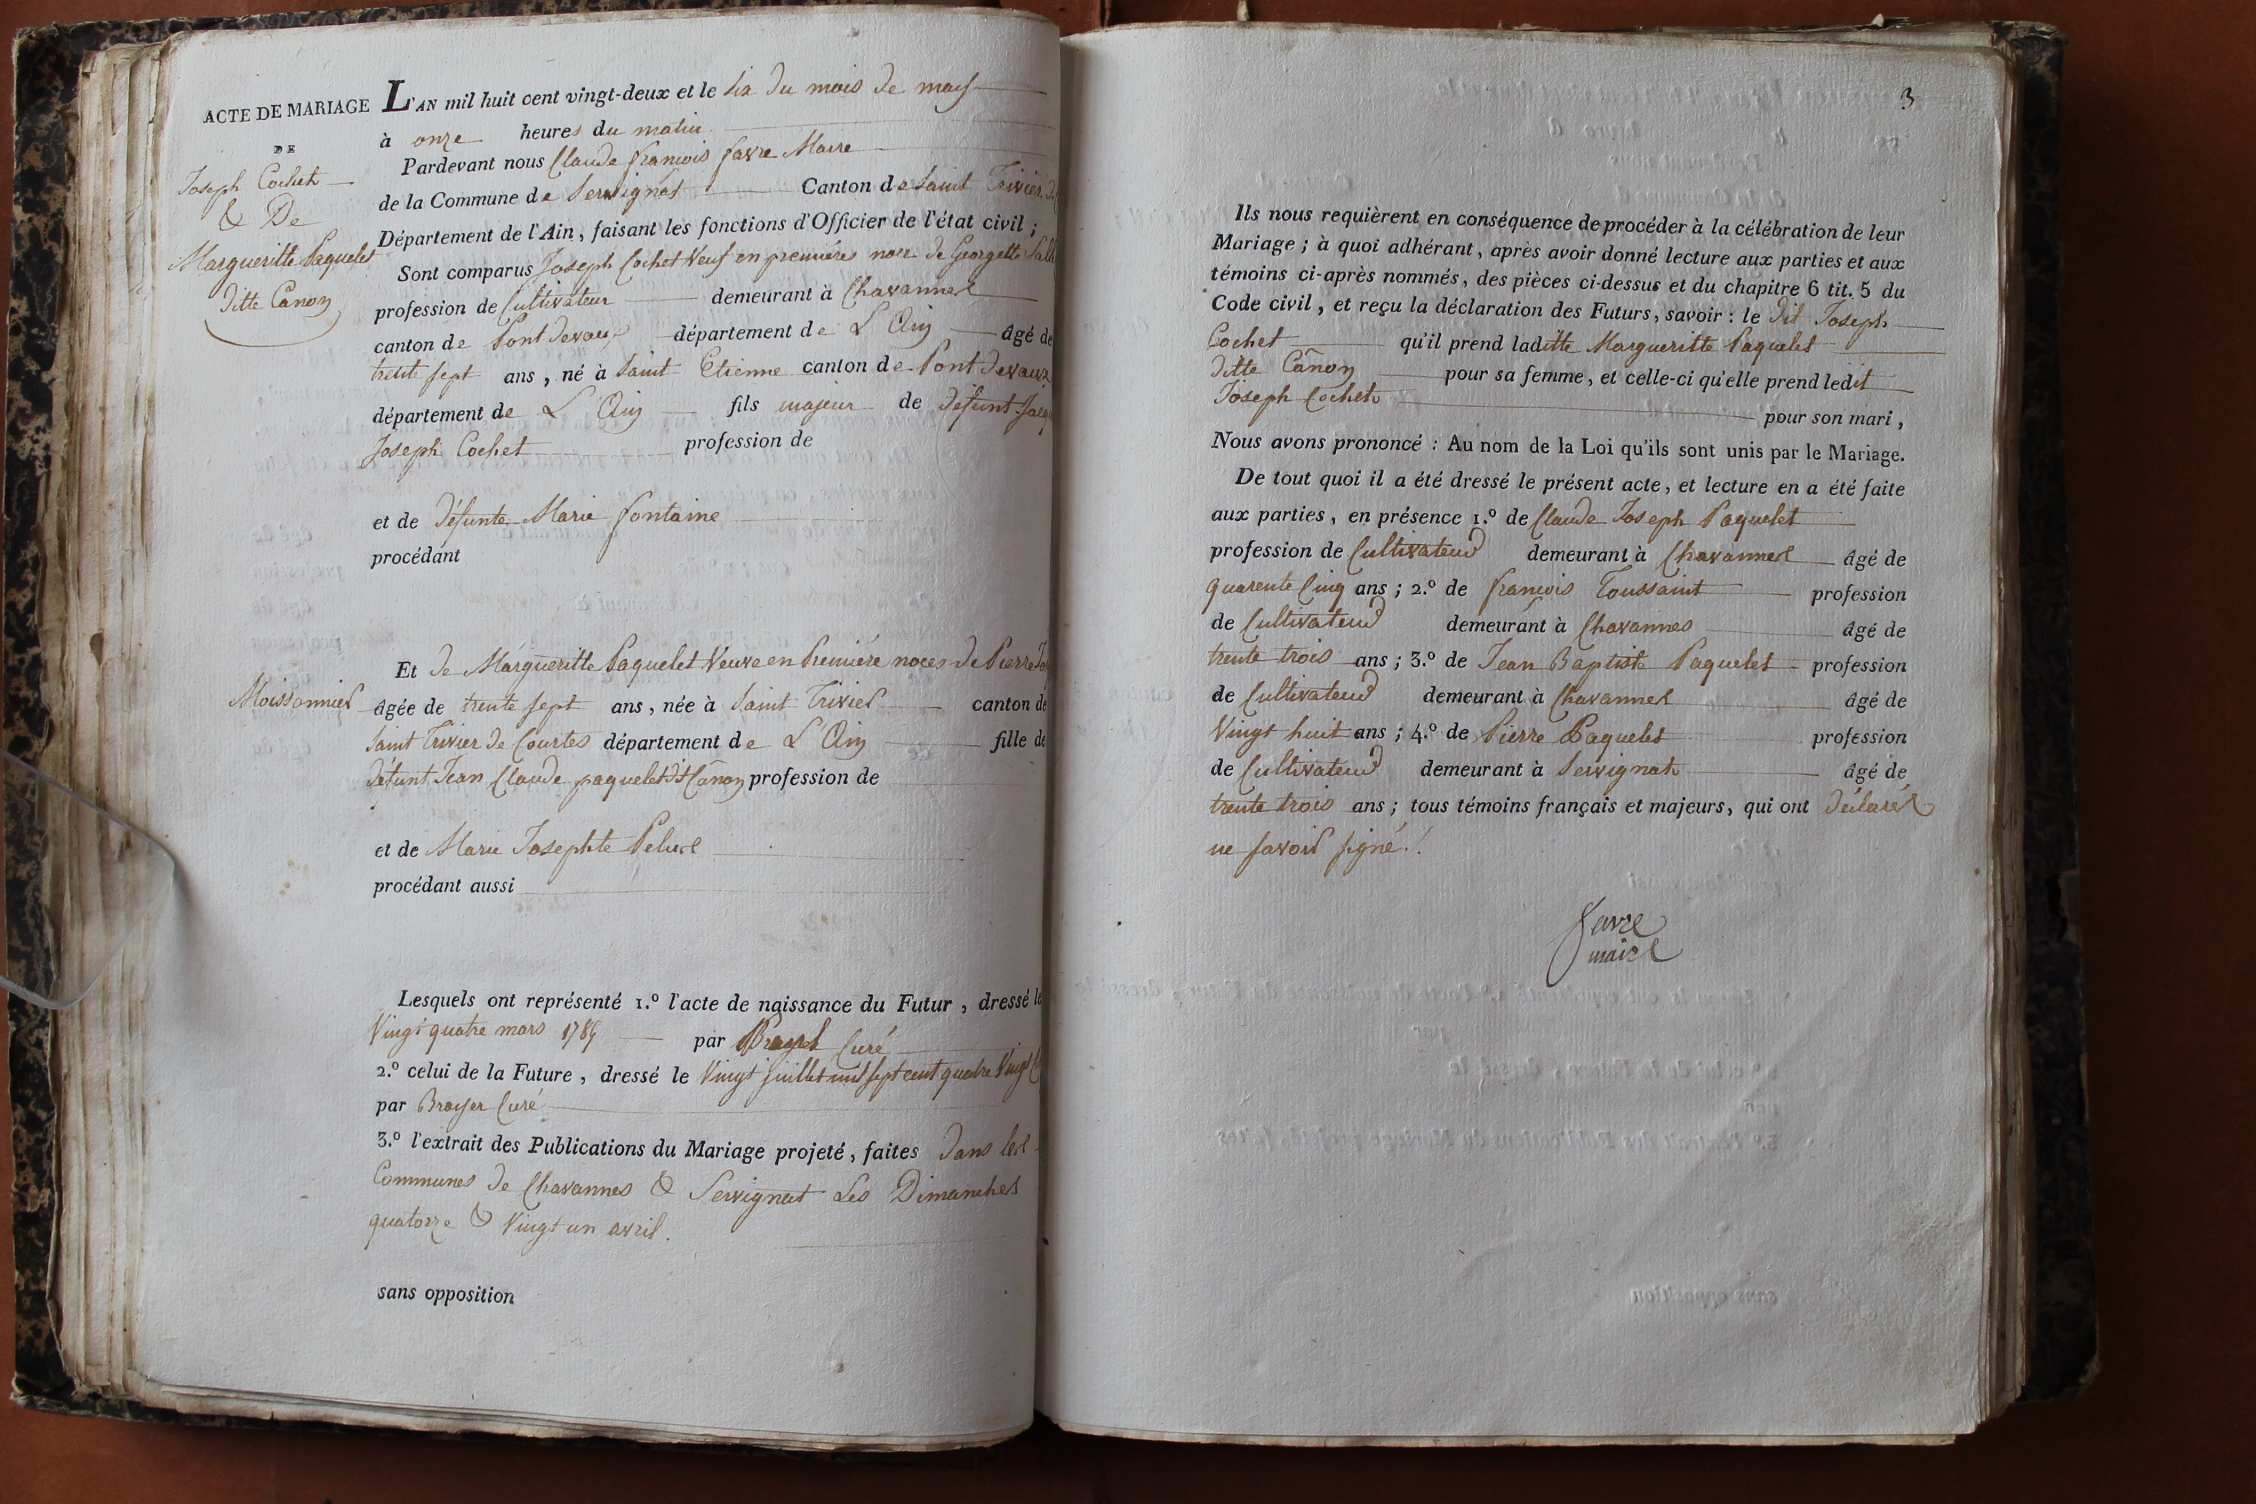 ACTE DE MARIAGE
DE
Joseph Cochet
& De
Margueritte Paquelet
ditte Canon
L'AN mil huit cent vingt-deux et le six du mois de may
à onze heures du matin
Pardevant nous Claude francois favre Maire
de la Commune de Servignat Canton de Saint Trivier
Département de l'Ain, faisant les fonctions d'Officier de l'état civil ;
Sont comparus Joseph Cochet Veuf en premières noce de Georgette
profession de Cultivateur demeurant à Chavannes
canton de Pont devaux département de L'Ain âgé de
trente sept ans, né à Saint Etienne canton de Pont devaux
département de L'Ain fils majeur de défunt
Joseph Cochet profession de
et de défunte Marie fontaine
procédant
Et de Margueritte Paquelet Veuve en Première noces de Pierre
Moissonnier âgée de trente sept ans, née à Saint Trivier canton de
Saint Trivier de Courtes département de L'Ain fille de
défunt Jean Claude paquelet dit Cânon profession de
et de Marie Josephte
procédant aussi
Lesquels ont représenté 1.º l'acte de naissance du Futur, dressé le
Vingt quatre mars par Curé
2.º celui de la Future, dressé le Vingt juillet mil sept cent quatre Vingt
par Brayer Curé
3.º l'extrait des Publications du Mariage projeté, faites dans les
Communes de Chavannes & Servignat Les Dimanches
quatorze & Vingt un avril.
sans opposition
3
Ils nous requièrent en conséquence de procéder à la célébration de leur
Mariage ; à quoi adhérant, après avoir donné lecture aux parties et aux
témoins ci-après nommés, des pièces ci-dessus et du chapitre 6 tit. 5 du
Code civil, et reçu la déclaration des Futurs, savoir : le dit Joseph
Cochet qu'il prend laditte Margueritte Paquelet
ditte Cânon pour sa femme, et celle-ci qu'elle prend ledit
Joseph Cochet
pour son mari,
Nous avons prononcé : Au nom de la Loi qu'ils sont unis par le Mariage.
De tout quoi il a été dressé le présent acte, et lecture en a été faite
aux parties, en présence 1.º de Claude Joseph Paquelet
profession de Cultivateur demeurant à Chavannes âgé de
quarente Cinq ans ; 2.º de francois Toussaint profession
de Cultivateur demeurant à Chavannes âgé de
trente trois ans ; 3.º de Jean Baptiste Paquelet profession
de Cultivateur demeurant à Chavannes âgé de
Vingt huit ans ; 4.º de Pierre Paquelet profession
de Cultivateur demeurant à Servignat âgé de
trente trois ans ; tous témoins français et majeurs, qui ont déclarés
ne savoir signé.
favre
maire